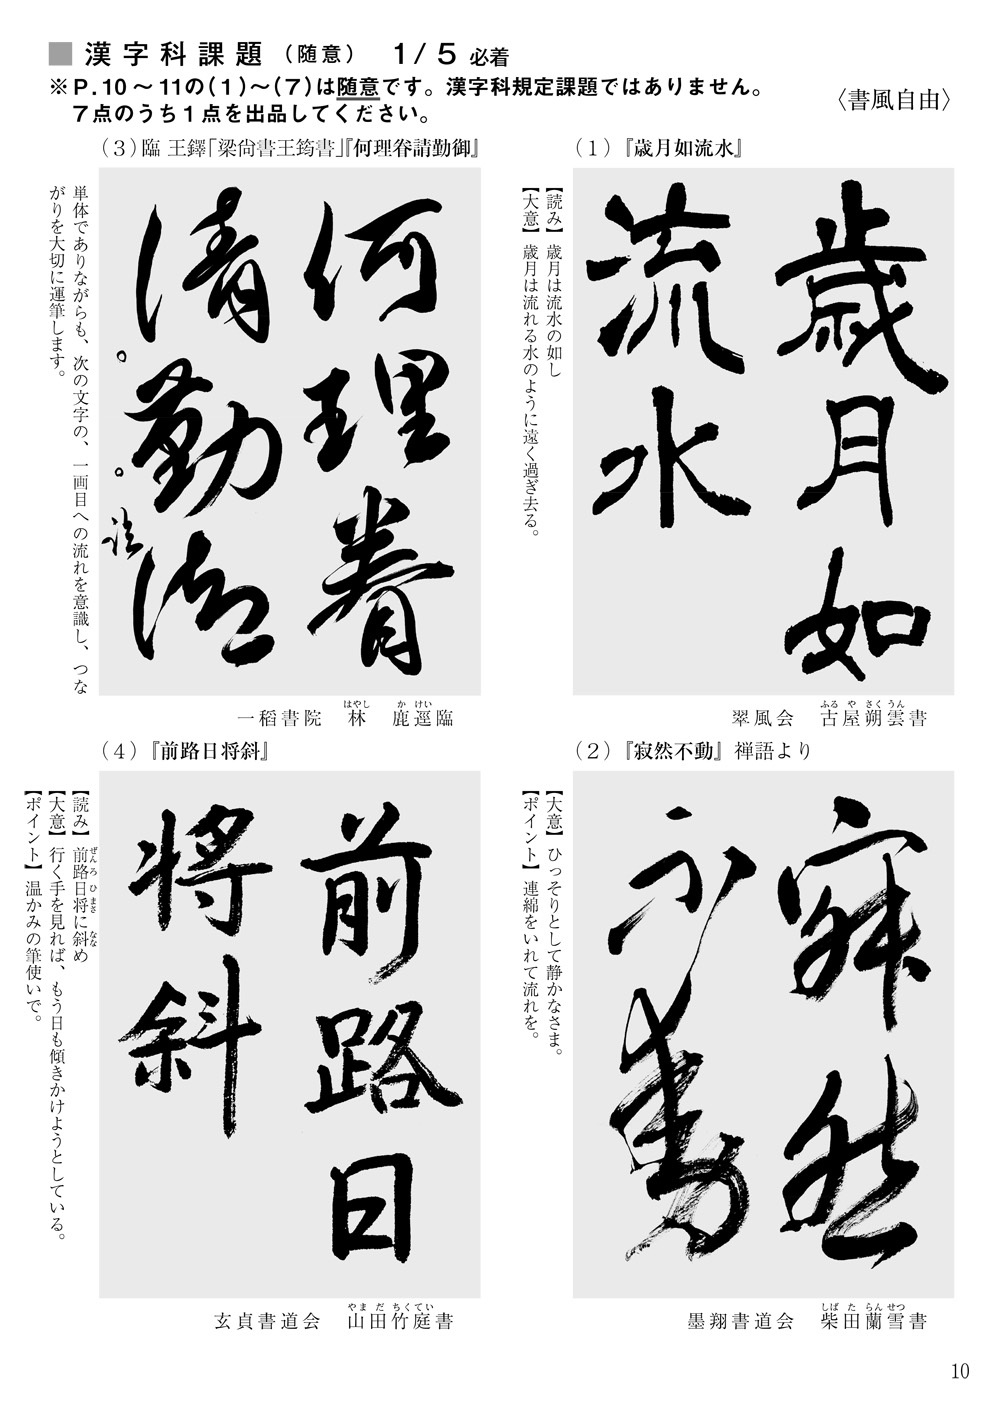 ■漢字科課題（随意） 1/5必着
※P.10～11の(1)～(7)は随意です。漢字科規定課題ではありません。
7点のうち1点を出品してください。
〈書風自由〉
(1)『歳月如流水』
歳月如
流水
【読み】歳月は流水の如し
【大意】歳月は流れる水のように遠く過ぎ去る。
翠風会 古屋朔雲書
ふるや さくうん
(2)『寂然不動』禅語より
寂然
不動
【大意】ひっそりとして静かなさま。
【ポイント】連綿をいれて流れを。
墨翔書道会 柴田蘭雪書
しばた らんせつ
(3)臨 王鐸「梁尙書王筠書」『何理眷請勤御』
何理眷
請。勤。御
請
単体でありながらも、次の文字の、一画目への流れを意識し、つな
がりを大切に運筆します。
一稻書院 林 鹿逕臨
はやし かけい
(4)『前路日将斜』
前路日
将斜
【読み】前路日将に斜め
ぜんろひまさ なな
【大意】行く手を見れば、もう日も傾きかけようとしている。
【ポイント】温かみの筆使いで。
玄貞書道会 山田竹庭書
やまだ ちくてい
10